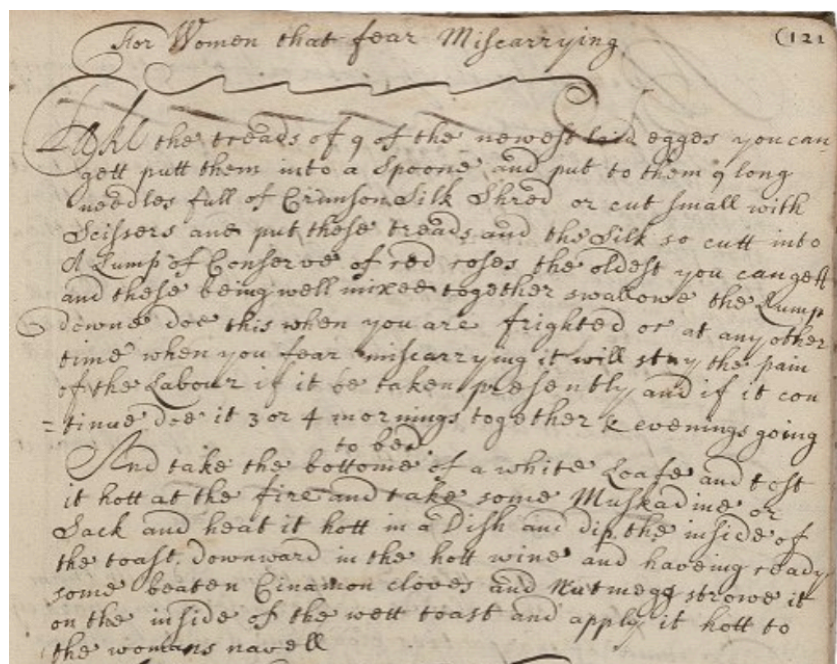 For Women that fear Miscarrying (121
Take the treads of 9 of the newest laid egges you can
gett putt them into a Spoone and put to them 9 long
needles full of Crimson Silk Shred or cut small with
Scissers and put these treads and the Silk so cutt into
A Lump of Conserve of red roses the oldest you can gett
and these being well mixed together swallowe the Lump
downe doe this when you are frighted or at any other
time when you fear miscarrying it will stay the pain
of the Labour if it be taken presently and if it con
=tinue doe it 3 or 4 mornings together & evenings going
to bed
And take the bottome of a white Loafe and tost
it hott at the fire and take some Muskadine or
Sack and heat it hott in a Dish and dip the inside of
the toast downward in the hott wine and haveing ready
some beaten Cinamon cloves and Nutmegg strowe it
on the inside of the wett toast and apply it hott to
the womans navell